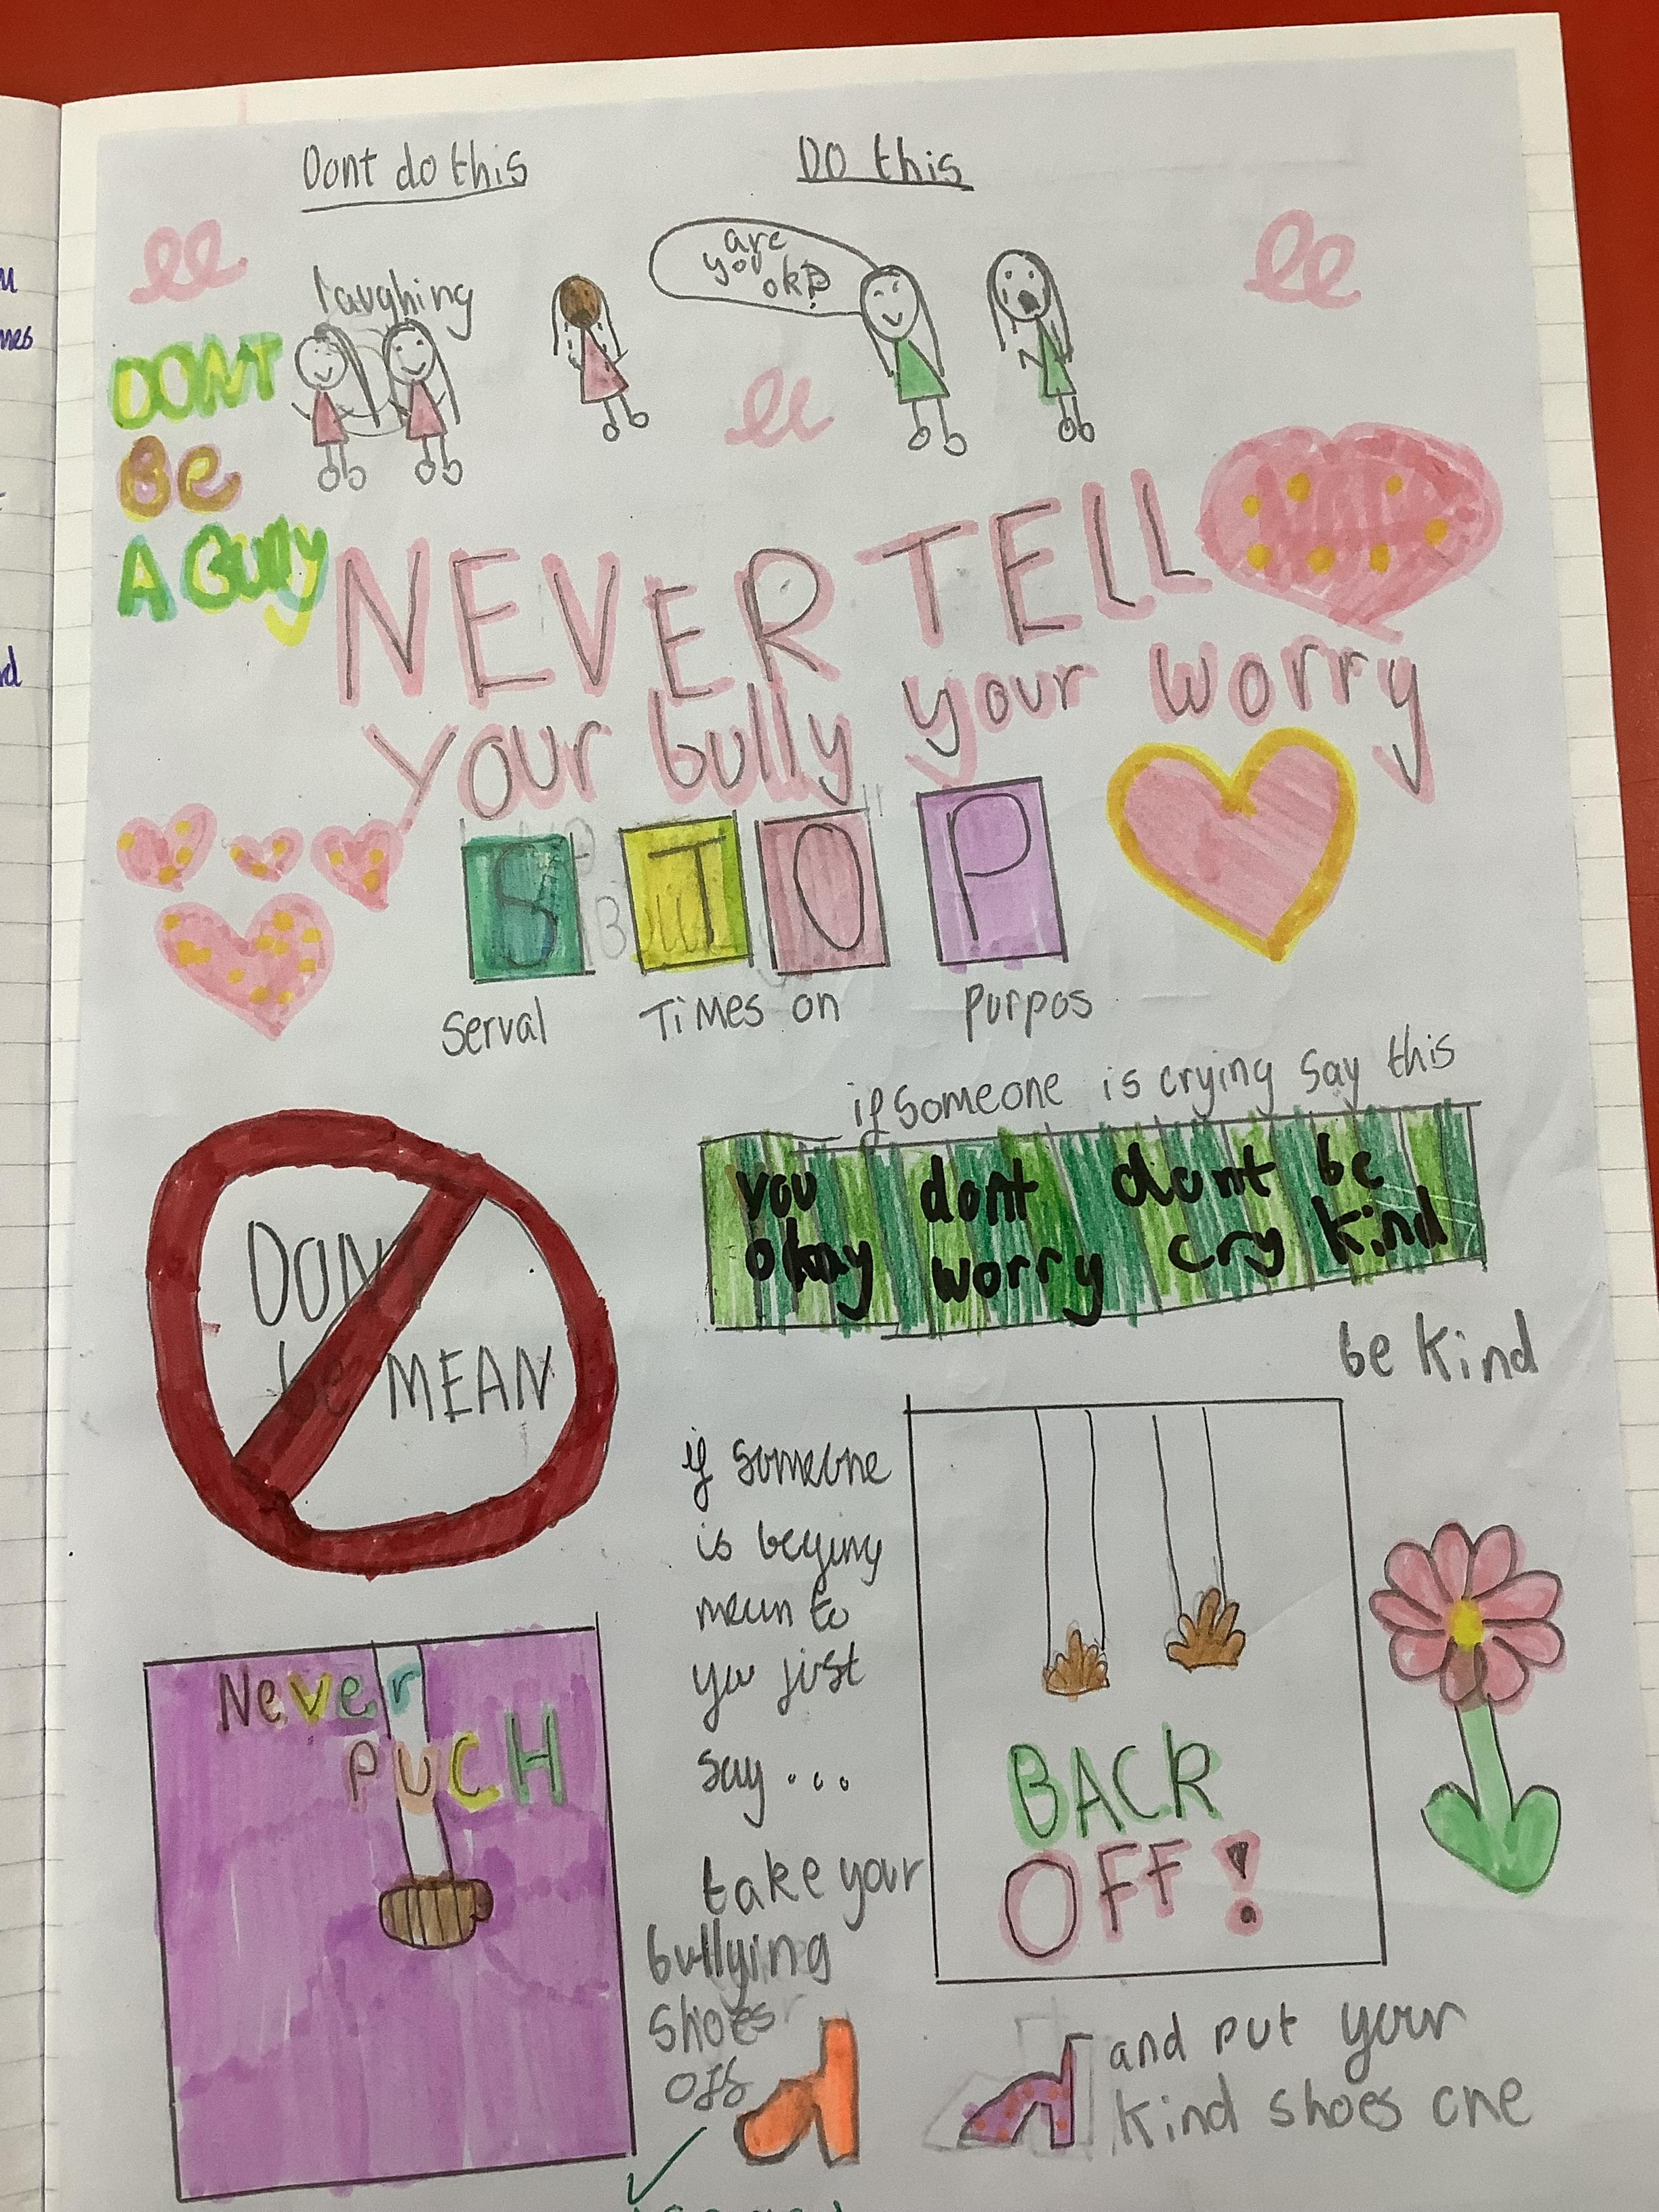 Dont do this
DO this
laughing
are
you
ok?
DONT
Be
A Bully
NEVER TELL
your bully your worry
STOP
Serval Times on Purpos
if someone is crying say this
you dont dont be
okay worry cry kind
be kind
DON
be MEAN
if someone
is beying
mean to
you just
say...
BACK
OFF!
Never
PUCH
take your
bullying
shoes
off
and put your
kind shoes one